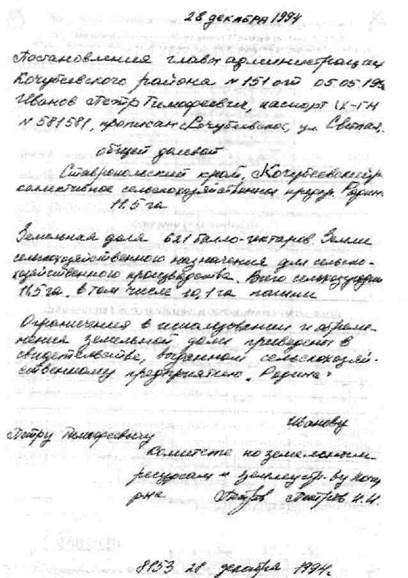 28 декабря 1994
Постановления главы администрации
Кочубеевского района N 151 от 05.05.199
Иванов Петр Тимофеевич, паспорт IX-ГН
N 581581, прописан с. Кочубеевское, ул. Светлая.
общей долевой
Ставропольский край, Кочубеевский р-
коллективное сельскохозяйственное предпр. Родина
11.5 га
Земельная доля 621 балло-гектаров. Земли
сельскохозяйственного назначения для сельско-
хозяйственного производства. Всего сельхозугодий
11,5 га. в том числе 10,1 га пашни
Ограничения в использовании и обреме-
нения земельной доли приведены в
свидетельстве, выданном сельскохозяй-
ственному предприятию "Родина"
Иванову
Петру Тимофеевичу
Комитете по земельным
ресурсам и землеустр. ву Коч
р-на Петров Петров Н.И.
8153 28 декабря 1994г.